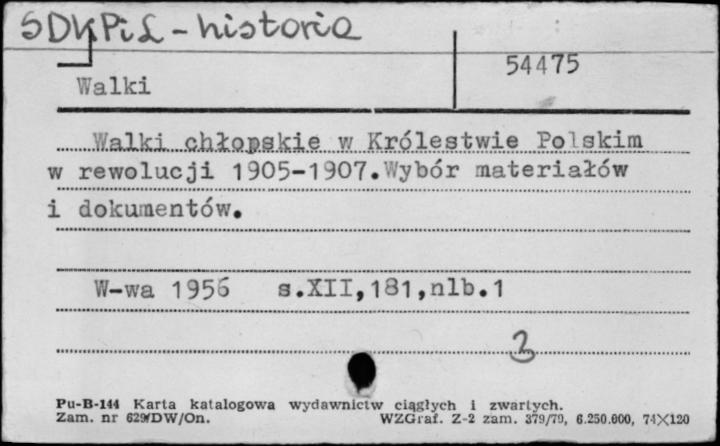 SDKPiL - historia
54475
Walki
Walki chłopskie w Królestwie Polskim
w rewolucji 1905-1907.Wybór materiałów
i dokumentów.
W-wa 1956 s.XII,181,nlb.1
2
Pu-B-144 Karta katalogowa wydawnictw ciągłych i zwartych.
Zam. nr 629/DW/On. WZGraf. Z-2 zam. 379/79, 6.250.000, 74X120